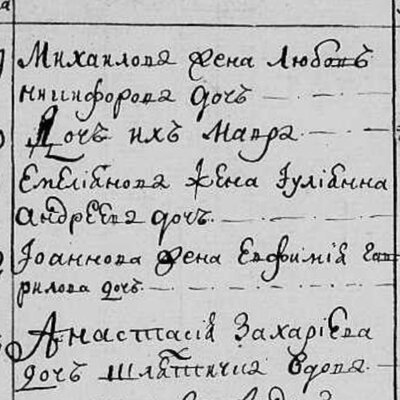 Михаилова жена Любовъ
никифорова дочъ
Дочъ ихъ Мавра
Емелiанова жена Iулiанна
андреева дочъ
Iоаннова жена Евфимiя Гав
рилова дочъ
Анастасiя Захарiева
дочъ шляхтича вдова